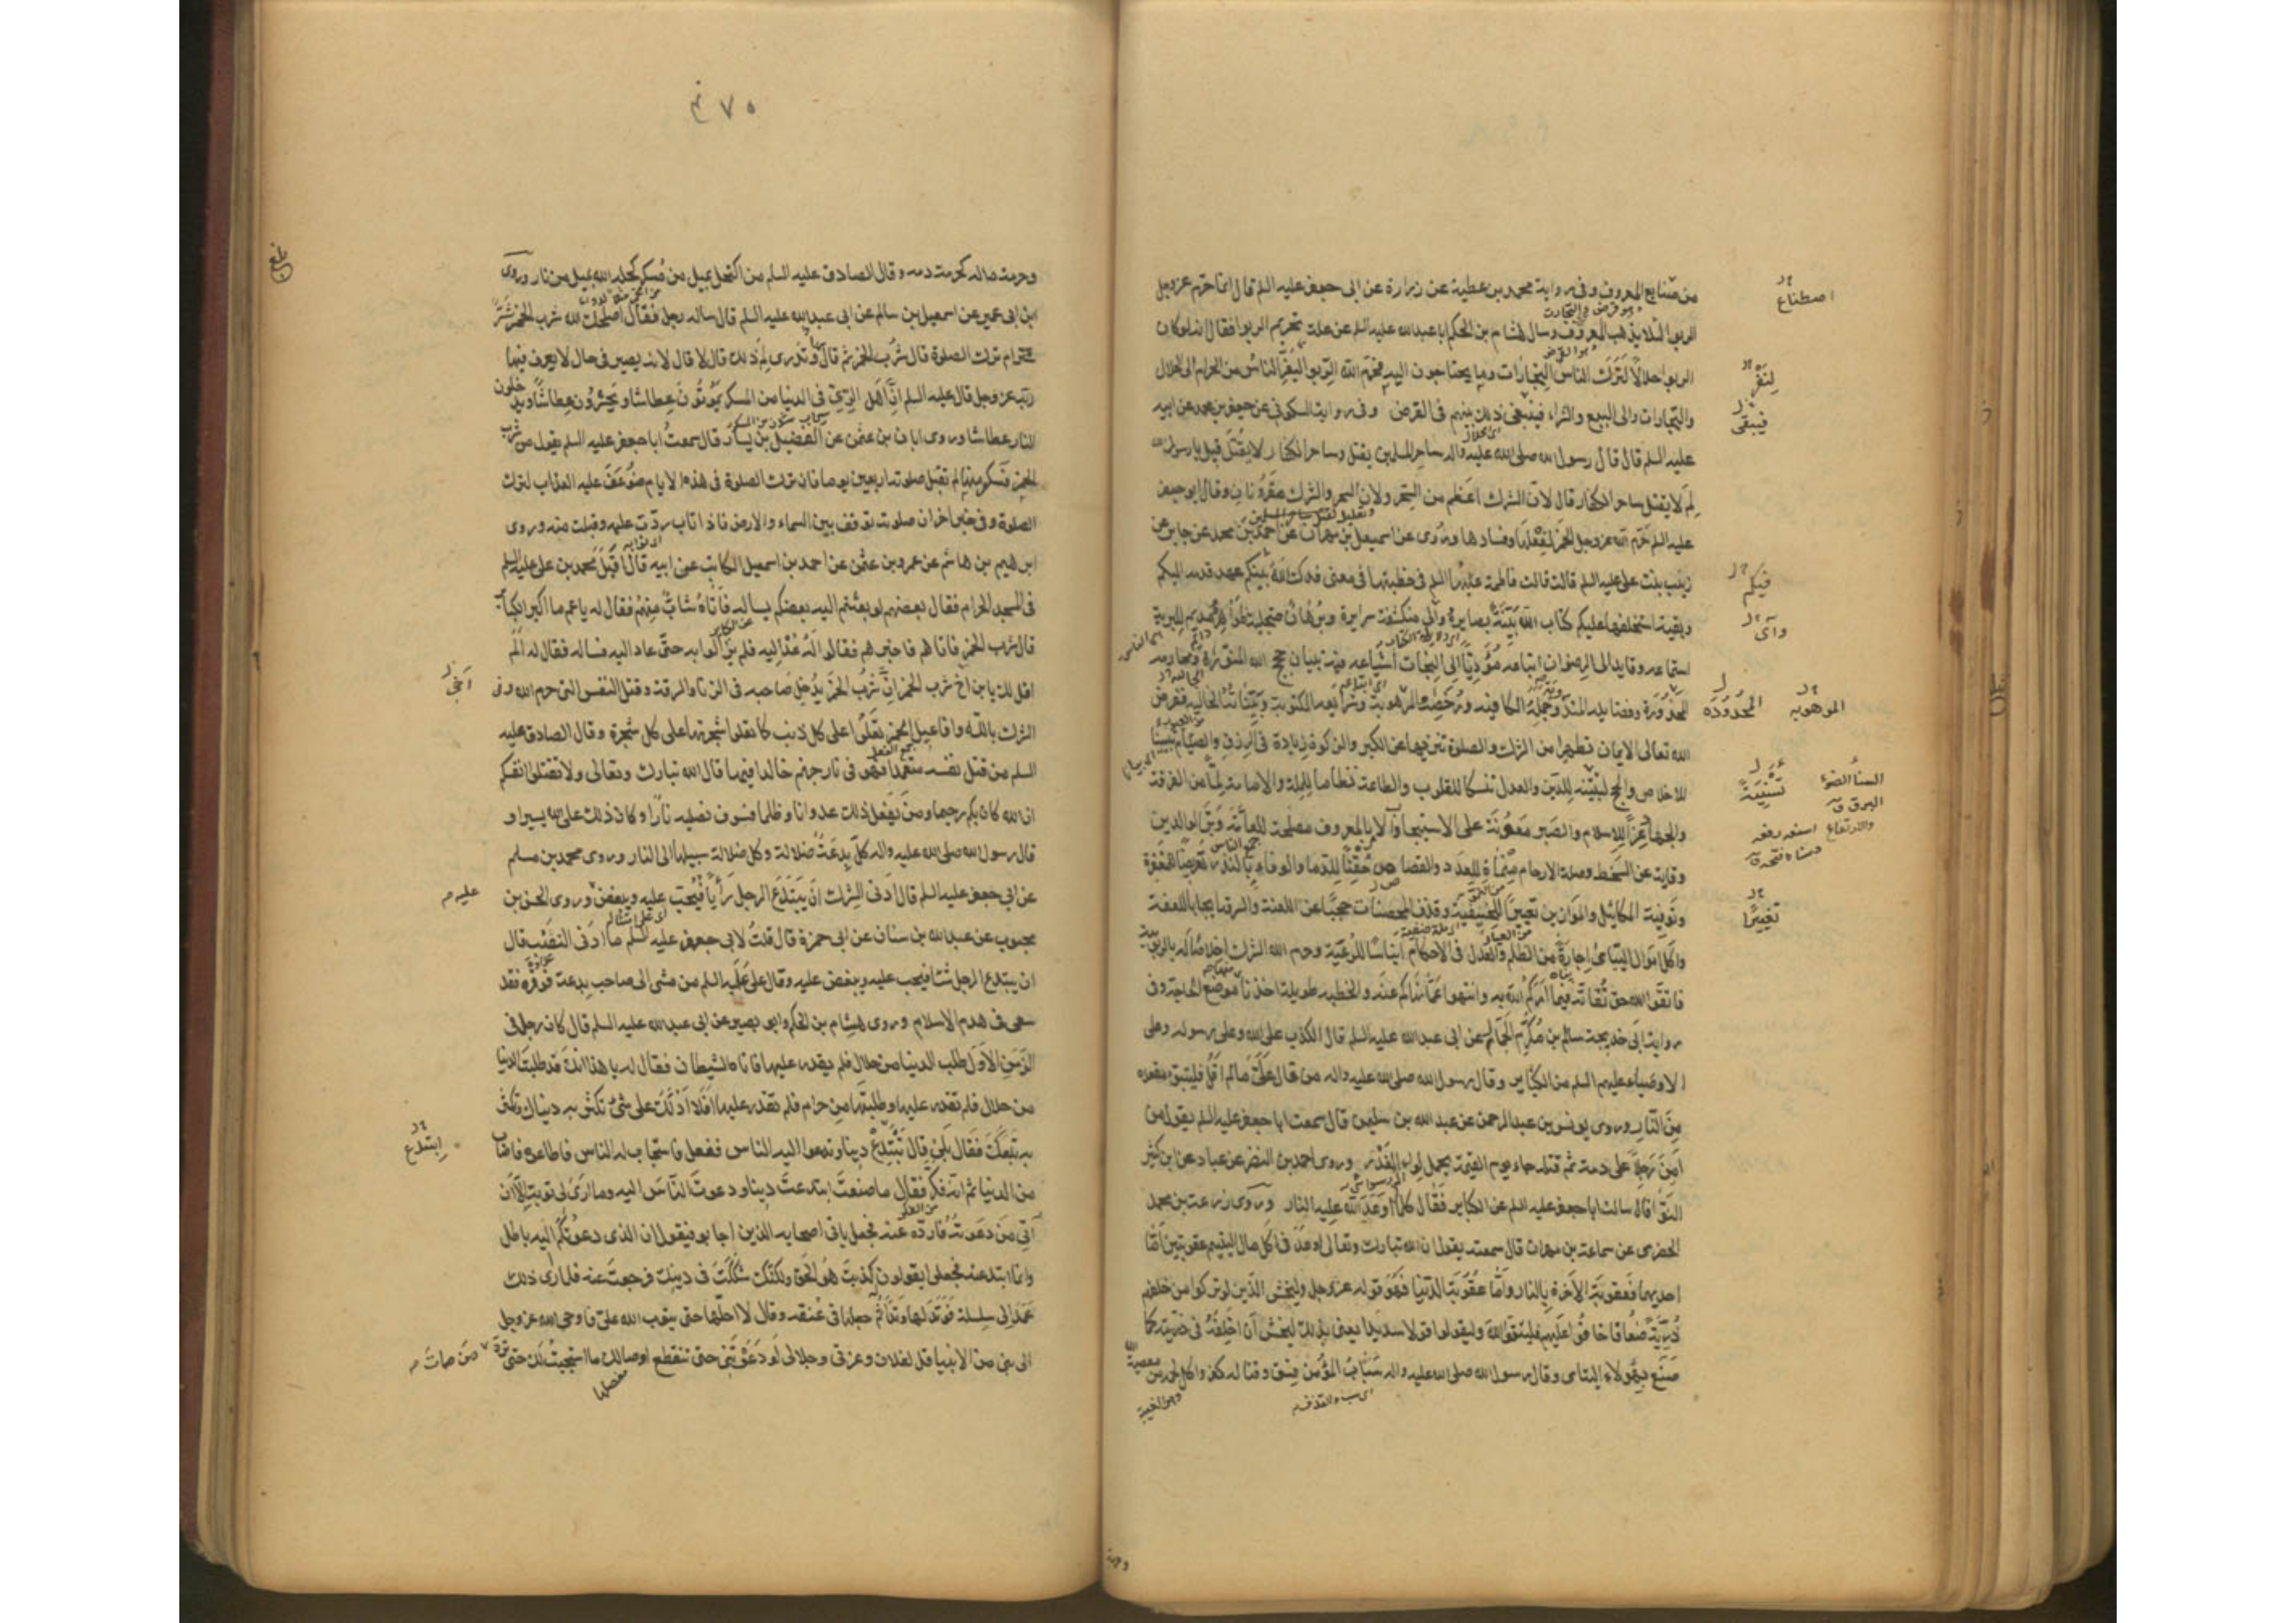 من صنايع المعروف وفي رواية محمد بن عطية عن زرارة عن ابي جعفر عليه السلم قال انما حرم عز وجل
الربوا لئلا يذهب المعروف وسال هشام بن الحكم ابا عبد الله عليه السلم عن علة تحريم الربوا فقال انه لو كان
الربوا حلالا لترك الناس التجارات وما يحتاجون اليه فحرم الله الربوا ليفر الناس من الحرام الى الحلال
والتجارات والى البيع والشراء فيبقى ذلك بينهم في القرض وفي رواية السكوني عن جعفر بن محمد عن ابيه
عليه السلم قال قال رسول الله صلى الله عليه واله ساحر المسلمين يقتل وساحر الكفار لا يقتل قيل يا رسول الله
لم لا يقتل ساحر الكفار قال لان الشرك اعظم من السحر ولان السحر والشرك مقرونان وقال ابو جعفر
عليه السلم حرم الله عز وجل الخمر لفعلها وفسادها وروى عن اسمعيل بن مهران عن احمد بن محمد عن جابر عن
زينب بنت علي عليه السلم قالت قالت فاطمة عليها السلم في خطبتها في معنى فدك لله بينكم عهد قدمه اليكم
وبقية استخلفها عليكم كتاب الله بينة بصايره وآي منكشفة سرايره وبرهان متجلية ظواهره مديم للبرية
استماعه وقايد الى الرضوان اتباعه مؤديا الى النجات اشياعه فيه تبيان حجج الله المنورة ومحارمه
المحذورة وفضايله المندوبة وجمله الكافية ورخصه الموهوبة وشرايعه المكتوبة وبيناته الخالية ففرض
الله تعالى الايمان تطهيرا من الشرك والصلوة تنزيها عن الكبر والزكوة زيادة في الرزق والصيام تبيينا
للاخلاص والحج تسنية للدين والعدل تنسكا للقلوب والطاعة نظاما للملة والامامة لما من الفرقة
والجهاد عزا للاسلام والصبر معونة على الاستيجاب والامر بالمعروف مصلحة للعامة وبر الوالدين
وقاية عن السخط وصلة الارحام منماة للعدد والقصاص حقنا للدما والوفاء بالنذر تعريضا للمغفرة
وتوفية المكائيل والموازين تعييرا للحنيفية وقذف المحصنات حجبا عن اللعنة والسرقة ايجابا للعفة
واكل اموال اليتامى اجارة من الظلم والعدل في الاحكام ايناسا للرعية وحرم الله الشرك اخلاصا له بالربوبية
فاتقوا الله حق تقاته فيما امركم الله به وانتهوا عما نهاكم عنه والخطبة طويلة اخذنا منها موضع الحاجة وفي
رواية ابي خديجة سالم بن مكرم الجمال عن ابي عبد الله عليه السلم قال الكذب على الله وعلى رسوله وعلى
الاوصياء عليهم السلم من الكباير وقال رسول الله صلى الله عليه واله من قال علي ما لم اقل فليتبوء مقعده
من النار وروى يونس بن عبد الرحمن عن عبد الله بن سليمن قال سمعت ابا جعفر عليه السلم يقول من
آمن رجلا على دمه ثم قتله جاء يوم القيمة يحمل لواء الغدر وروى احمد بن النضر عن عباد عن ابن كثير
النوا قال سالت ابا جعفر عليه السلم عن الكباير فقال كلما اوعد الله عليه النار وروى زرعة بن محمد
الحضرمي عن سماعة بن مهران قال سمعته يقول ان الله تبارك وتعالى اوعد في اكل مال اليتيم عقوبتين اما
احديهما فعقوبة الاخرة بالنار واما عقوبة الدنيا فهو قوله عز وجل وليخش الذين لو تركوا من خلفهم
ذرية ضعافا خافوا عليهم فليتقوا الله وليقولوا قولا سديدا يعني بذلك ليخش ان اخلفه في ذريته كما
صنع بهؤلاء اليتامى وقال رسول الله صلى الله عليه واله سباب المؤمن فسق وقتاله كفر واكل لحمه من معصية الله
اصطناع
لنفر
فيبقى
فيكم
وآي
المحدوده
الموهوبه
تسنية
السنا الضوء
البرق
والارتفاع
تغييرا
وحرمة
٤٧٥
بلغ
وحرمة ماله كحرمة دمه وقال الصادق عليه السلم من اكتحل بميل من مسكر كحله الله بميل من نار وروى
ابن ابي عمير عن اسمعيل بن سالم عن ابي عبد الله عليه السلم قال ساله رجل فقال اصلحك الله شرب الخمر شر
ام ترك الصلوة قال شرب الخمر ثم قال وتدرى لم ذلك قال لا قال لانه يصير في حال لا يعرف فيها
ربه عز وجل قال عليه السلم ان اهل الري في الدنيا من المسكر يموتون عطاشا ويحشرون عطاشا ويدخلون
النار عطاشا وروى ابان بن عثمن عن الفضيل بن يسار قال سمعت ابا جعفر عليه السلم يقول من شرب
الخمر فسكر منها لم تقبل صلوته اربعين يوما فان ترك الصلوة في هذه الايام ضوعف عليه العذاب لترك
الصلوة وفي خبر اخر ان صلوته توقف بين السماء والارض فاذا تاب ردت عليه وقبلت منه وروى
ابرهيم بن هاشم عن عمرو بن عثمن عن احمد بن اسمعيل الكاتب عن ابيه قال اقبل محمد بن علي عليه السلم
في المسجد الحرام فقال بعضهم لو بعثتم اليه بعضكم يساله فاتاه شاب منهم فقال له يا عم ما اكبر الكباير
قال شرب الخمر فاتاهم فاخبرهم فقالوا له عد اليه فلم يزالوا به حتى عاد اليه فساله فقال له الم
اقل لك يا بن اخ شرب الخمر ان شرب الخمر يدخل صاحبه في الزنا والسرقة وقتل النفس التي حرم الله وفي
الشرك بالله وافاعيل الخمر تعلو على كل ذنب كما تعلوا شجرتها على كل شجرة وقال الصادق عليه
السلم من قتل نفسه متعمدا فهو في نار جهنم خالدا فيها قال الله تبارك وتعالى ولا تقتلوا انفسكم
ان الله كان بكم رحيما ومن يفعل ذلك عدوانا وظلما فسوف نصليه نارا وكان ذلك على الله يسيرا و
قال رسول الله صلى الله عليه واله كل بدعة ضلالة وكل ضلالة سبيلها الى النار وروى محمد بن مسلم
عن ابي جعفر عليه السلم قال ادنى الشرك ان يبتدع الرجل رأيا فيحب عليه ويبغض وروى الحسن بن
محبوب عن عبد الله بن سنان عن ابي حمزة قال قلت لابي جعفر عليه السلم ما ادنى النصب قال
ان يبتدع الرجل شيئا فيحب عليه ويبغض عليه وقال علي عليه السلم من مشى الى صاحب بدعة فوقره فقد
سعى في هدم الاسلام وروى هشام بن الحكم وابو بصير عن ابي عبد الله عليه السلم قال كان رجل في
الزمن الاول طلب الدنيا من حلال فلم يقدر عليها فاتاه الشيطان فقال له يا هذا انك قد طلبت الدنيا
من حلال فلم تقدر عليها وطلبتها من حرام فلم تقدر عليها افلا ادلك على شئ تكثر به دنياك وتكثر
به تبعك فقال بلى قال تبتدع دينا وتدعوا اليه الناس ففعل فاستجاب له الناس فاطاعوه فاصاب
من الدنيا ثم انه فكر فقال ما صنعت ابتدعت دينا ودعوت الناس اليه وما ارى لي توبة الا ان
آتي من دعوته فارده عنه فجعل ياتي اصحابه الذين اجابوه فيقول ان الذي دعوتكم اليه باطل
وانما ابتدعته فجعلوا يقولون كذبت هو الحق ولكنك شككت في دينك فرجعت عنه فلما رأى ذلك
عمد الى سلسلة فوتد لها وتدا ثم جعلها في عنقه وقال لا احلها حتى يتوب الله علي فاوحى الله عز وجل
الى نبي من الانبيا قل لفلان وعزتي وجلالي لو دعوتني حتى تنقطع اوصالك ما استجبت لك حتى ترد من مات
اخي
عليه
ابتدع
مفصلها